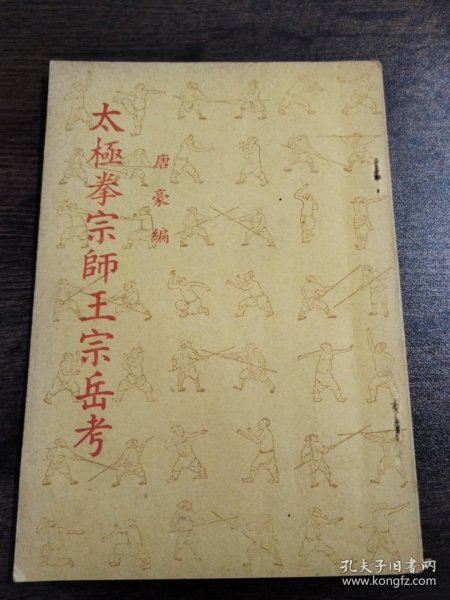 太極拳宗師王宗岳考
唐豪編
孔夫子旧书网
www.kongfz.com